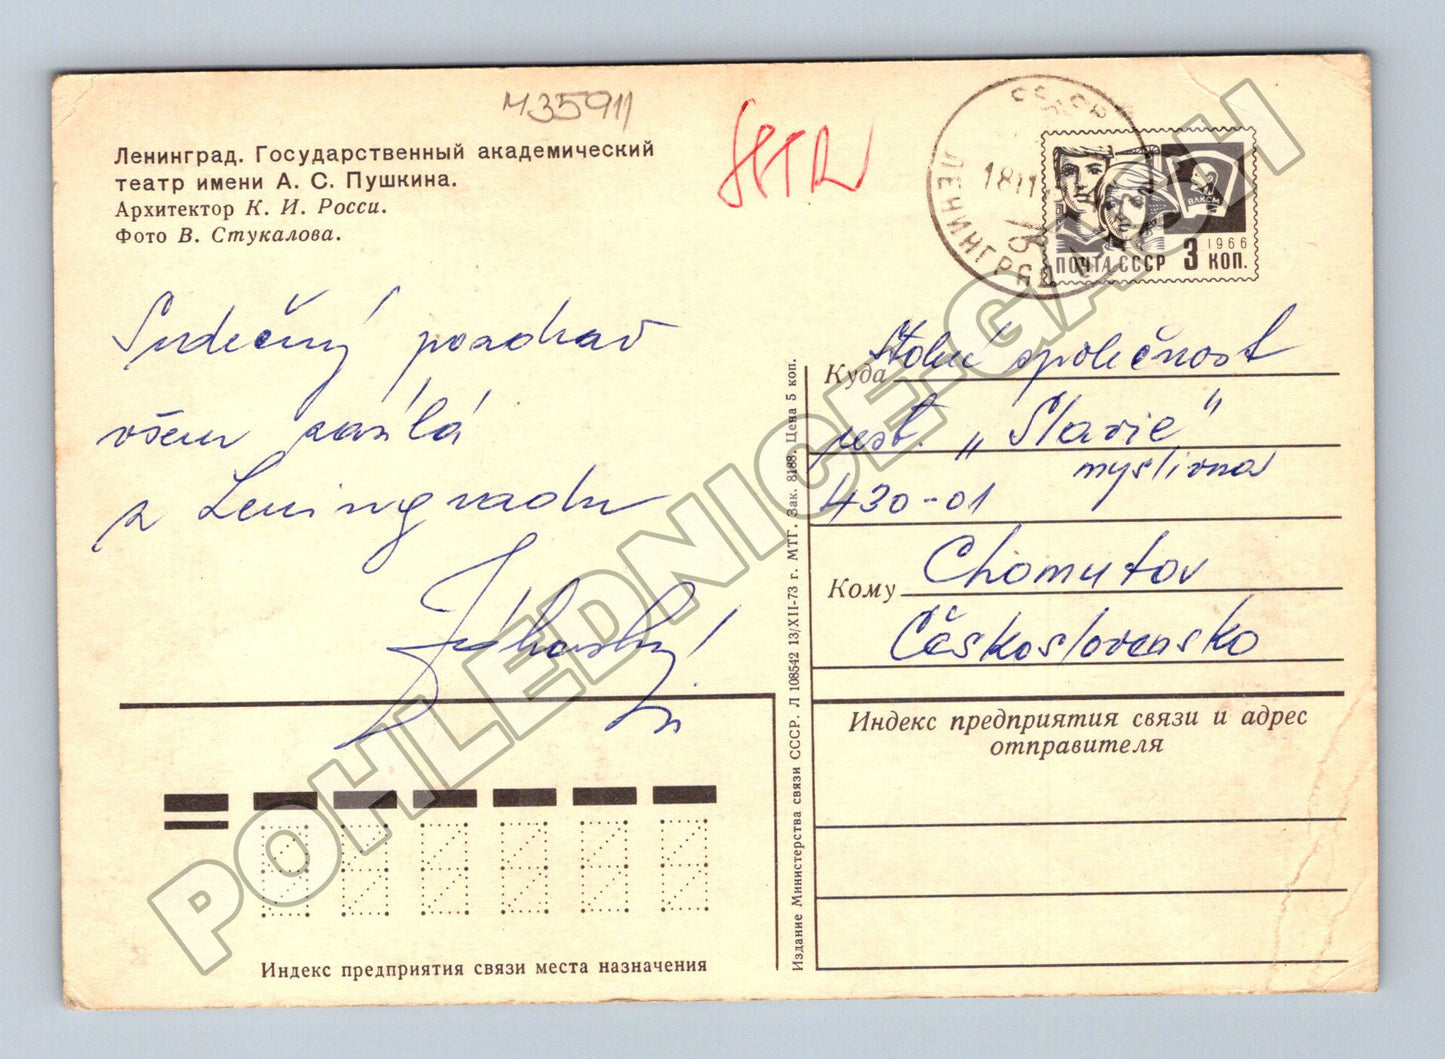 M35911
Ленинград. Государственный академический
театр имени А. С. Пушкина.
Архитектор К. И. Росси.
Фото В. Стукалова.
СССР
ЛЕНИНГРАД
ВЛКСМ
1966
ПОЧТА СССР 3 КОП.
Srdečný pozdrav
všem zasílá
z Leningradu
Куда
společnost
rest. „Slavie“
myslivna
430-01
Chomutov
Кому
Československo
Индекс предприятия связи и адрес
отправителя
Издание Министерства связи СССР. Л 108542 13/XII-73 г. МТГ. Зак. 8188. Цена 5 коп.
Индекс предприятия связи места назначения
POHLEDNICE-GASH